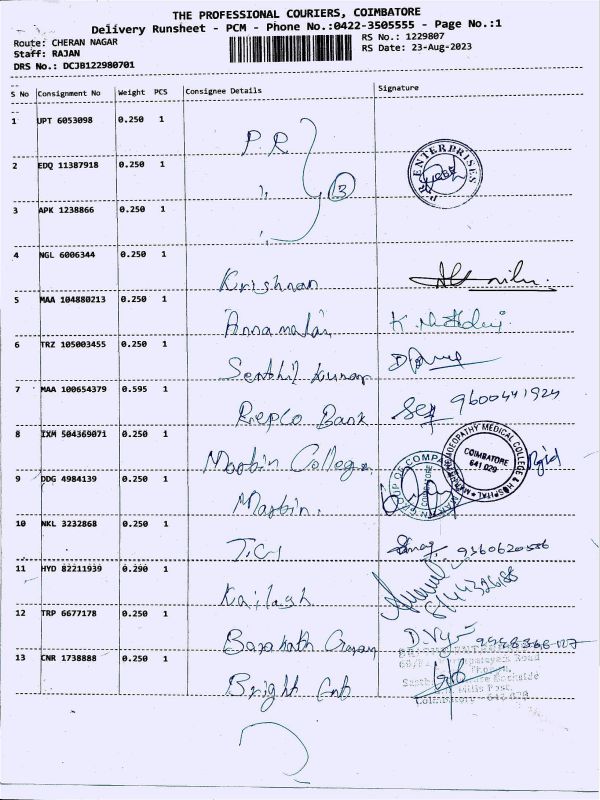 THE PROFESSIONAL COURIERS, COIMBATORE
Delivery Runsheet - PCM - Phone No.:0422-3505555 - Page No.:1
Route: CHERAN NAGAR
Staff: RAJAN
DRS No.: DCJB122980701
RS No.: 1229807
RS Date: 23-Aug-2023
S No Consignment No Weight PCS Consignee Details Signature
1 UPT 6053098 0.250 1 P.R
2 EDQ 11387918 0.250 1 " 13 P.R ENTERPRISES
3 APK 1238866 0.250 1
4 NGL 6006344 0.250 1 Krishnan
5 MAA 104880213 0.250 1 Annamalai
6 TRZ 105003455 0.250 1 Senthil Kumar
7 MAA 100654379 0.595 1 Repco Bank 9600441924
8 IXM 504369071 0.250 1 Martin College HOMOEOPATHY MEDICAL COLLEGE & HOSPITAL COIMBATORE 641 029
9 DDG 4984139 0.250 1 Martin. MARTIN GROUP OF COMPANIES COIMBATORE
10 NKL 3232868 0.250 1
11 HYD 82211939 0.290 1 Kailash
12 TRP 6677178 0.250 1
13 CNR 1738888 0.250 1 Bright
Road
Backside
Mills Post,
Coimbatore - 641 029